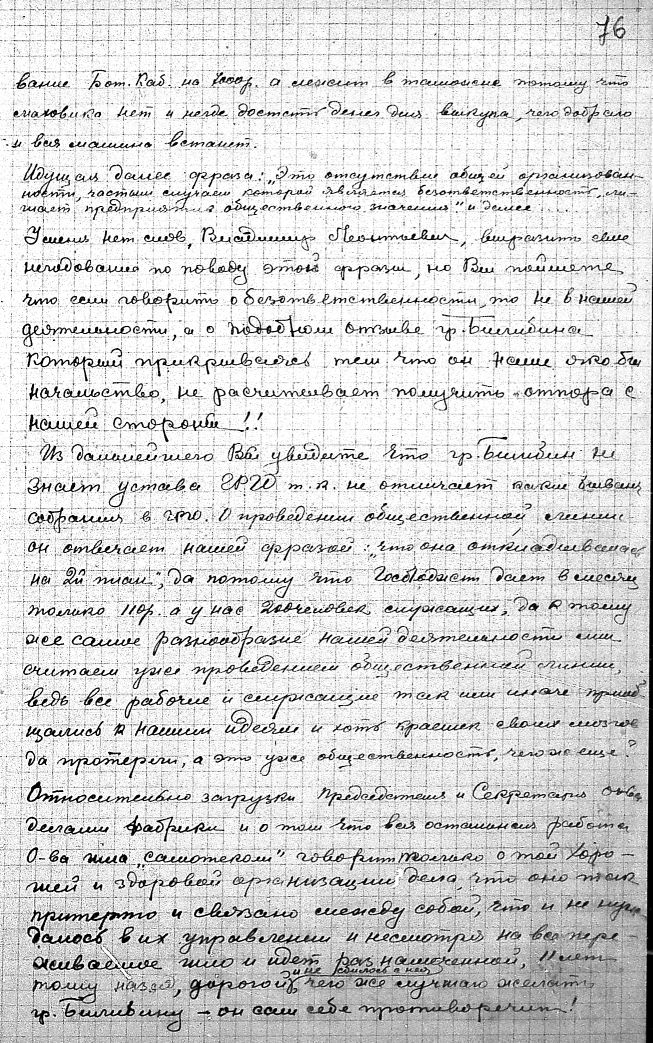 76
вание Бот. Каб. на 7000р. а лежит в таможне потому что
маховика нет и негде достать денег для выкупа, чего доброго
и вся машина встанет.
Идущая далее фраза: „Это отсутствие общей организован-
ности, частым случаем которой является безответственность, ли-
шает предприятие общественного значения" и далее ....
У меня нет слов, Владимир Леонтьевич, выразить свое
негодование по поводу этой фразы, но Вы поймете
что если говорить о безответственности, то не в нашей
деятельности, а о подобном отзыве гр. Билибина
который прикрываясь тем что он наше якобы
начальство, не расчитывает получить отпора с
нашей стороны!!
Из дальнейшего Вы увидите что гр. Билибин не
знает устава ГРГО т.к. не отличает какие бывают
собрания в ГРГО. О проведении общественной линии
он отвечает нашей фразой: „что она откладывалась
на 2й план", да потому что Госбюджет дает в месяц
только 110р. а у нас 200человек служащих, да к тому
же самое разнообразие нашей деятельности мы
считаем уже проведением общественной линии,
ведь все рабочие и служащие так или иначе приоб
щались к нашим идеям и хоть краешек своих мозгов
да протерли, а это уже общественность, чего же еще?
Относительно загрузки Председателя и Секретаря О-ва
делами фабрики и о том что вся остальная работа
О-ва шла „самотеком" говорит только о той хоро-
шей и здоровой организации дела, что оно так
притерто и связано между собой, что и не нуж
далось в их управлении и несмотря на все пере-
живаемое шло и идет раз намеченной, 11 лет
и не сбилось с нея
тому назад, дорогой, чего же лучшаго желать
гр. Билибину — он сам себе противоречит!